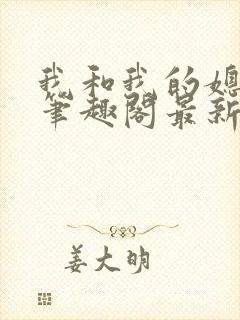 我和我的媳
笔趣阁最新
姜大明